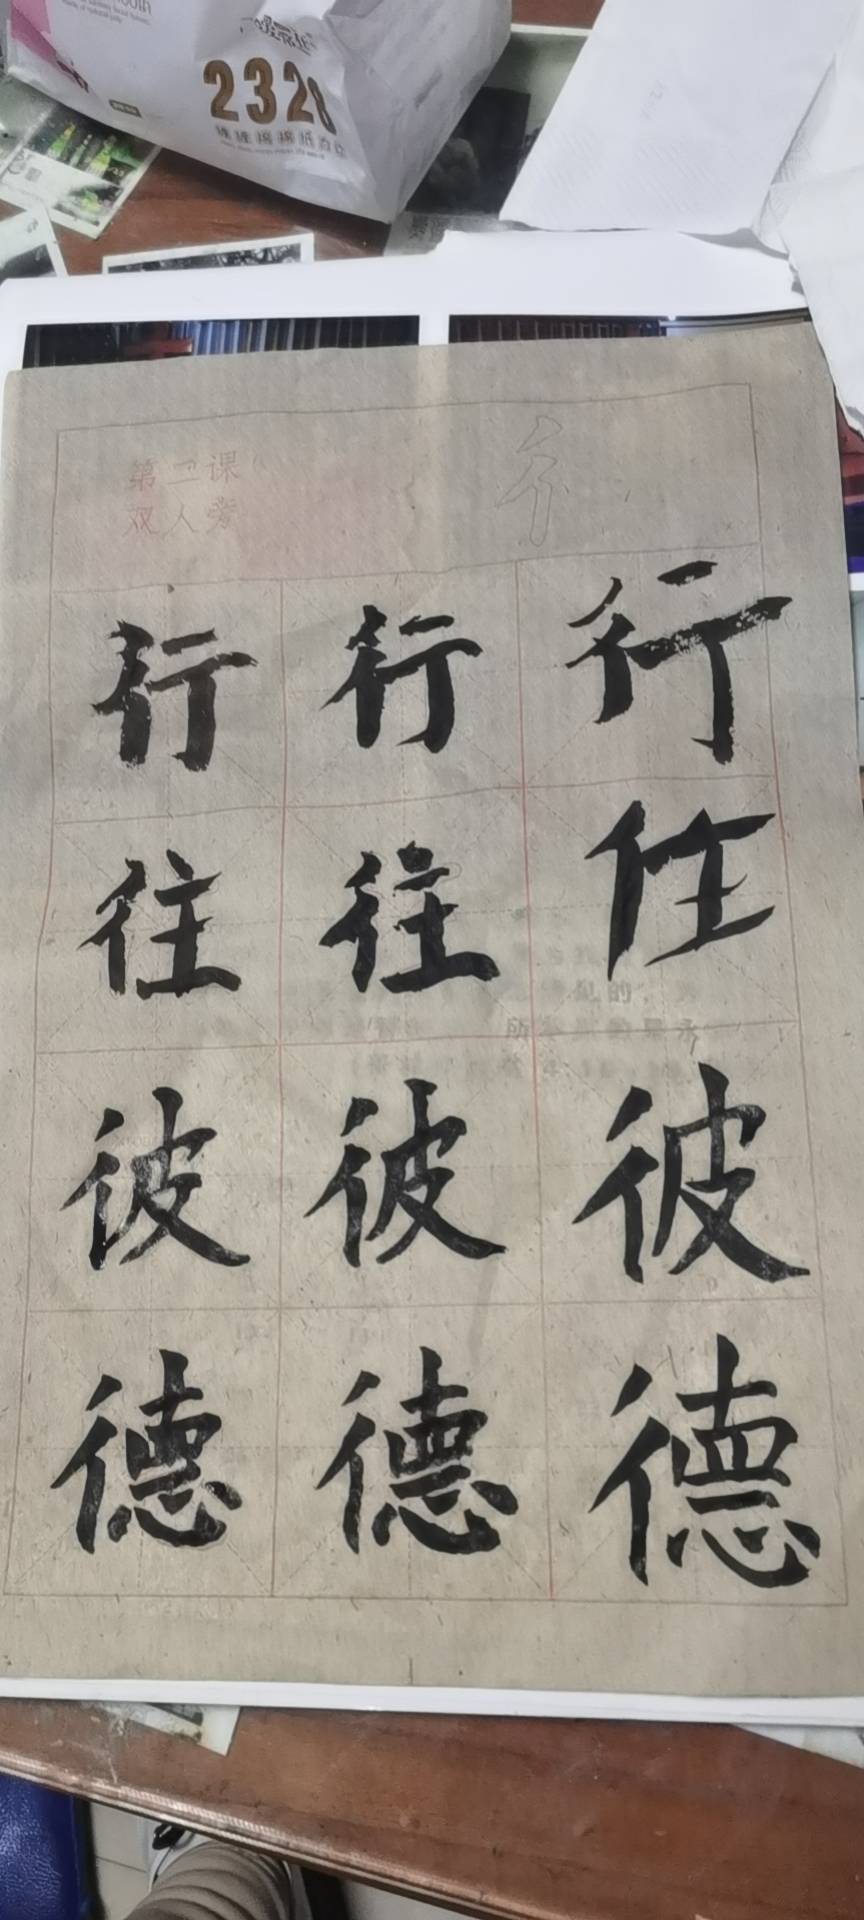 2328
第二课
双人旁
彳
行 行 行
往 往 住
彼 彼 彼
德 德 德